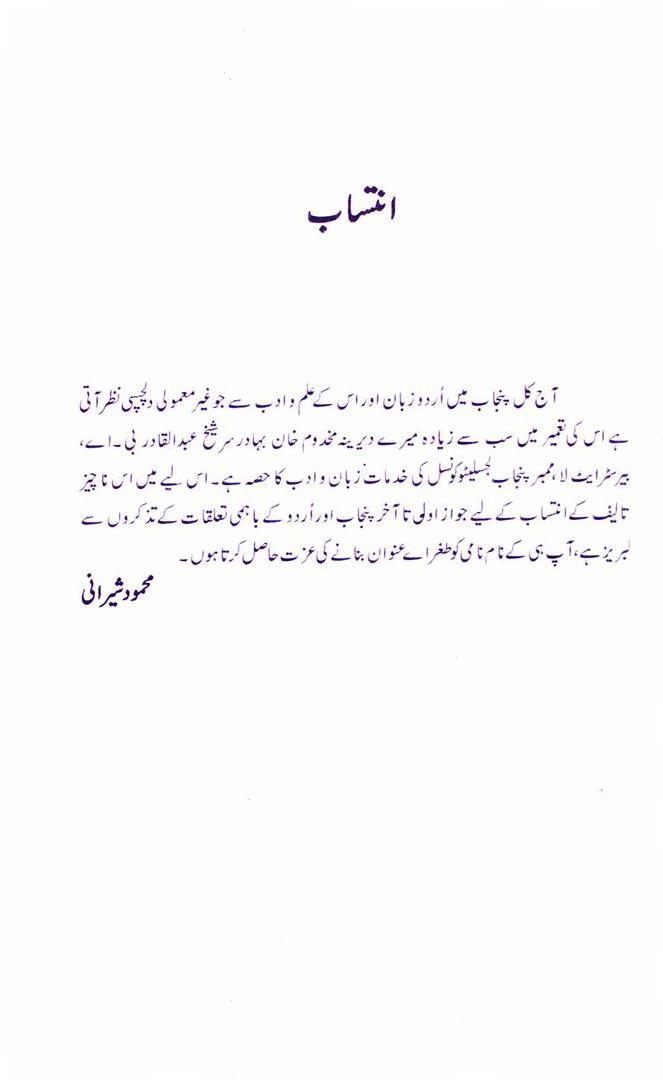 انتساب
آج کل پنجاب میں اُردو زبان اور اس کے علم و ادب سے جو غیر معمولی دلچسپی نظر آتی
ہے اس کی تعمیر میں سب سے زیادہ میرے دیرینہ مخدوم خان بہادر سر شیخ عبدالقادر بی۔اے،
بیرسٹر ایٹ لا، ممبر پنجاب لجسلیٹو کونسل کی خدمات زبان و ادب کا حصہ ہے۔ اس لیے میں اس ناچیز
تالیف کے انتساب کے لیے جو از اولی تا آخر پنجاب اور اُردو کے باہمی تعلقات کے تذکروں سے
لبریز ہے، آپ ہی کے نام نامی کو طغراے عنوان بنانے کی عزت حاصل کرتا ہوں۔
محمود شیرانی